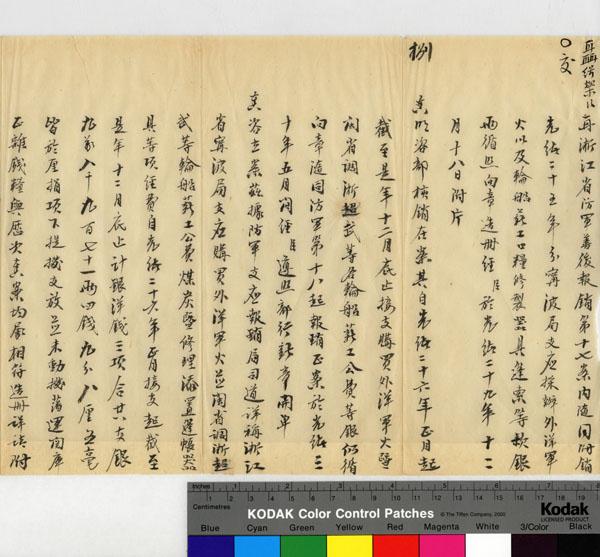 再浙江省防軍善後報銷第十七案內隨同附銷
○交
光緒二十五年分寧波局支應採辦外洋軍
火以及輪船薪工口糧修製器具蓬索等款銀
兩循照向章造冊經 於光緒二十九年十二
月十八日附片
捌
奏明咨部核銷在案其自光緒二十六年正月起
截至是年十二月底止接支購買外洋軍火暨
閩省調浙超武等各輪船薪工公費等銀仍循
向章隨同防軍第十八起報銷正案於光緒三
十年五月間經 遵照部行新章開單
奏咨立案茲據防軍支應報銷局司道詳稱浙江
省寧波局支應購買外洋軍火並閩省調浙超
武等輪船薪工公費煤炭暨修理添置蓬帳器
具等項經費自光緒二十六年正月接支起截至
是年十二月底止計銀洋錢三項合共支銀
九萬八千九百七十一兩四錢九分八厘五毫
皆於厘捐項下提撥支放並未動撥藩運兩庫
正雜錢糧與歷次奏案均屬相符造冊詳請附
Inches
1 2 3 4 5 6 7 8
Centimetres
1 2 3 4 5 6 7 8 9 10 11 12 13 14 15 16 17 18 19
KODAK Color Control Patches
© The Tiffen Company, 2000
Kodak
LICENSED PRODUCT
Blue Cyan Green Yellow Red Magenta White 3/Color Black